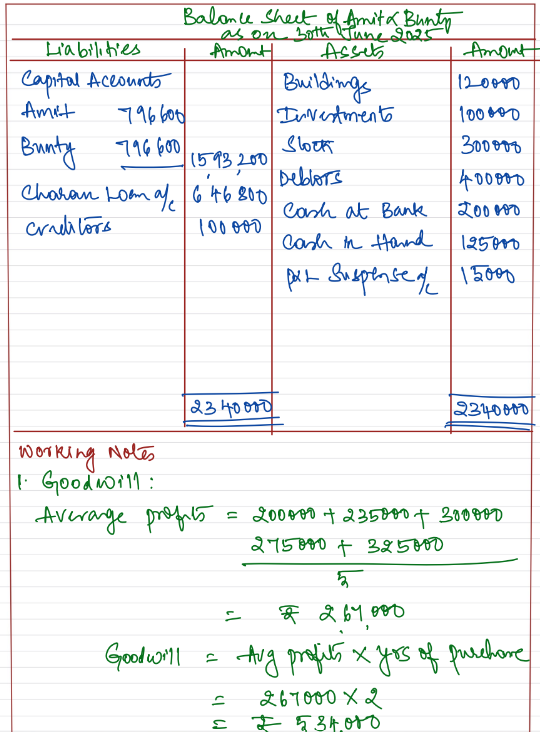 Balance Sheet of Amit & Bunty
as on 30th June 2025
Liabilities Amount Assets Amount
Capital Accounts Buildings 1200000
Amit 796600 Investments 100000
Bunty 796600 1593,200 Stock 300000
Debtors 400000
Charan Loan a/c 646800 Cash at Bank 200000
Creditors 100000 Cash in Hand 125000
P&L Suspense a/c 15000
2340000 2340000
Working Notes
1. Goodwill:
Average profits = 200000 + 235000 + 300000
275000 + 325000
5
= ₹ 267,000
Goodwill = Avg profits × yrs of purchase
= 267000 × 2
= ₹ 534,000